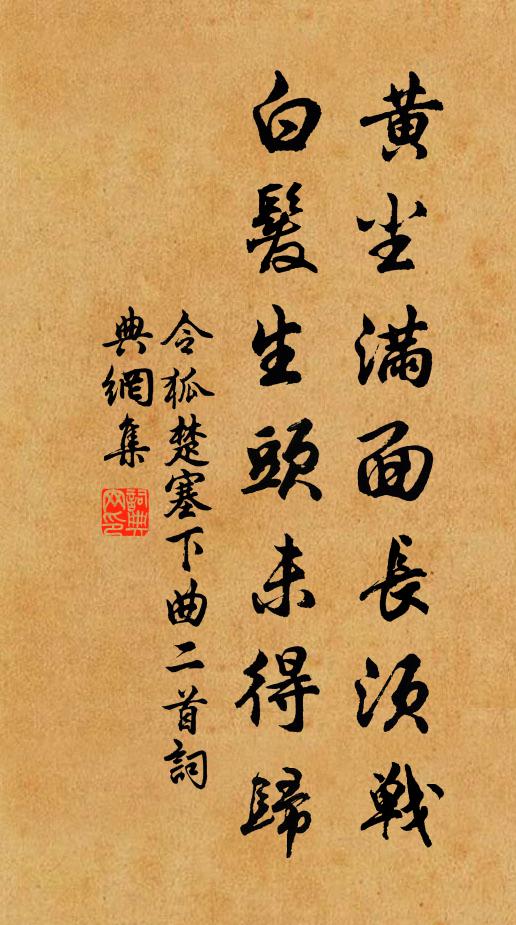 黃尘滿面長須戰
白髮生頭未得歸
令狐楚塞下曲二首詞
典網集
詞典
网印